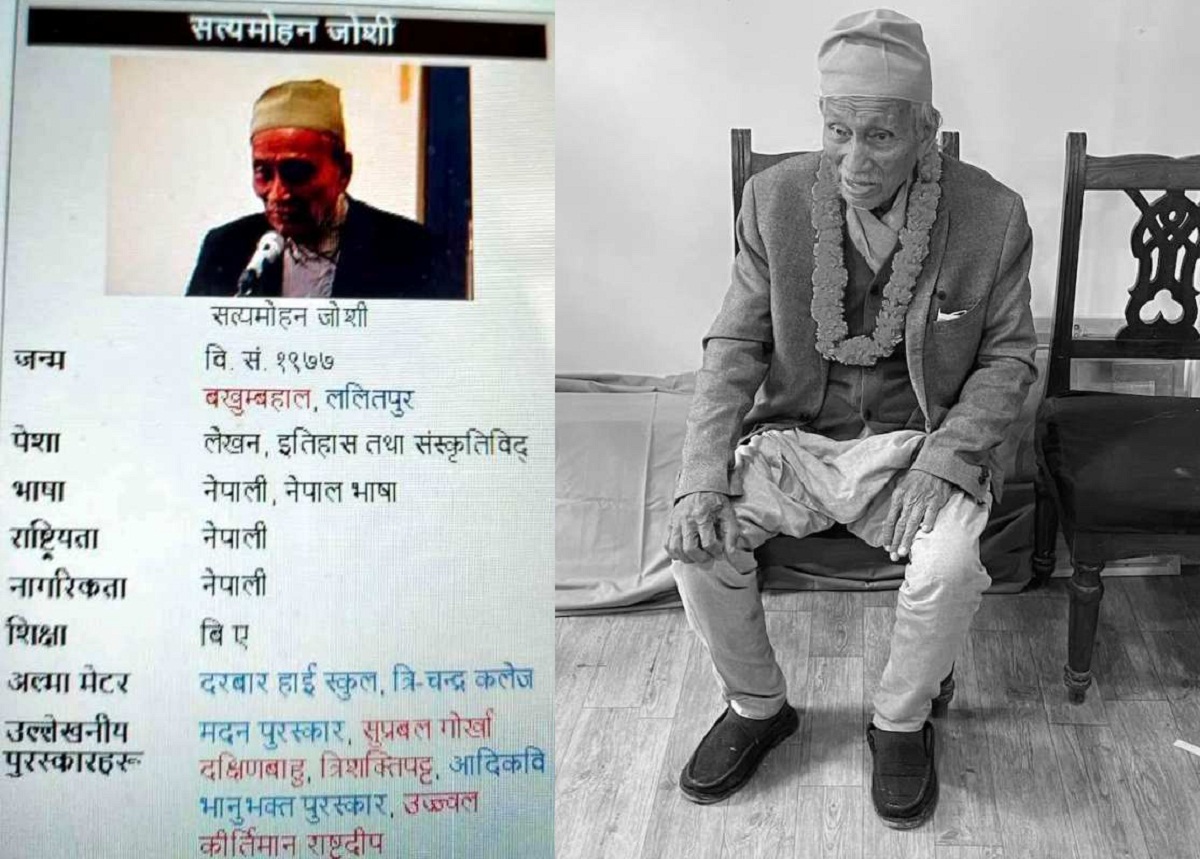 सत्यमोहन जोशी
सत्यमोहन जोशी
जन्म वि. सं. १९७७
बखुम्बहाल, ललितपुर
पेशा लेखन, इतिहास तथा संस्कृतिविद्
भाषा नेपाली, नेपाल भाषा
राष्ट्रियता नेपाली
नागरिकता नेपाली
शिक्षा बि ए
अल्मा मेटर दरबार हाई स्कुल, त्रि-चन्द्र कलेज
उल्लेखनीय मदन पुरस्कार, सुप्रबल गोर्खा
पुरस्कारहरू दक्षिणबाहु, त्रिशक्तिपट्ट, आदिकवि
भानुभक्त पुरस्कार, उज्ज्वल
कीर्तिमान राष्ट्रदीप